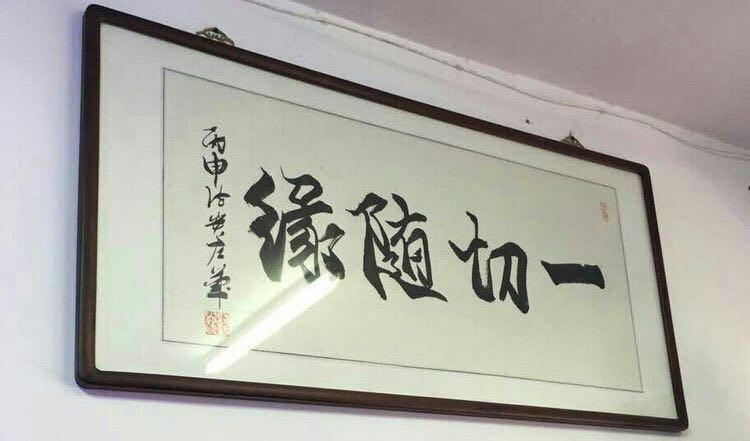 一切随缘
丙申